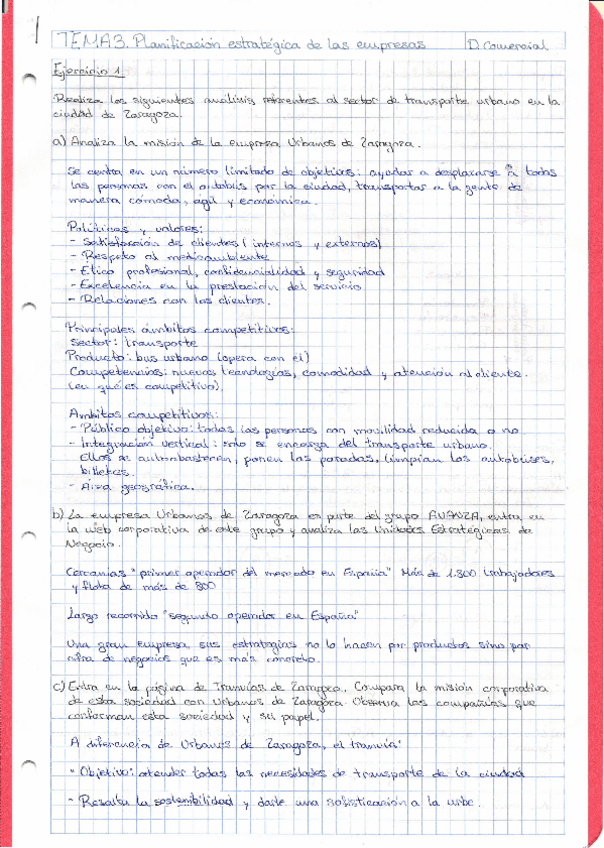 TEMA 3. Planificación estratégica de las empresas D. Comercial
Ejercicio 1
Realiza los siguientes análisis referentes al sector de transporte urbano en la
ciudad de Zaragoza.
a) Analiza la misión de la empresa Urbanos de Zaragoza.
Se centra en un número limitado de objetivos: ayudar a desplazarse a todas
las personas con el autobús por la ciudad, transportar a la gente de
manera cómoda, ágil y económica.
Políticas y valores:
- Satisfacción de clientes (internos y externos)
- Respeto al medioambiente
- Ética profesional, confidencialidad y seguridad
- Excelencia en la prestación del servicio
- Relaciones con los clientes.
Principales ámbitos competitivos:
Sector: transporte
Producto: bus urbano (opera con él)
Competencias: nuevas tecnologías, comodidad y atención al cliente.
(en qué es competitivo)
Ámbitos competitivos:
- Público objetivo: todas las personas con movilidad reducida o no
- Integración vertical: solo se encarga del transporte urbano.
Ellos se autoabastecen, ponen las paradas, limpian los autobuses,
billetes.
- Área geográfica.
b) La empresa Urbanos de Zaragoza es parte del grupo AVANZA, entra en
la web corporativa de este grupo y analiza las Unidades Estratégicas de
Negocio.
Cercanías "primer operador del mercado en España" Más de 1.800 trabajadores
y flota de más de 800
Largo recorrido "segundo operador en España"
Una gran empresa sus estrategias no lo hacen por productos sino por
de negocios que es más concreto.
c) Entra en la página de Tranvías de Zaragoza. Compara la misión corporativa
de esta sociedad con Urbanos de Zaragoza. Observa las compañías que
conforman esta sociedad y su papel.
A diferencia de Urbanos de Zaragoza, el tranvía:
- Objetivo: atender todas las necesidades de transporte de la ciudad
- Resalta la sostenibilidad y darle una sofisticación a la urbe.